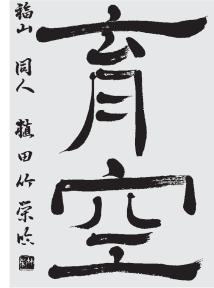 育空
福山 同人 植田竹栄臨